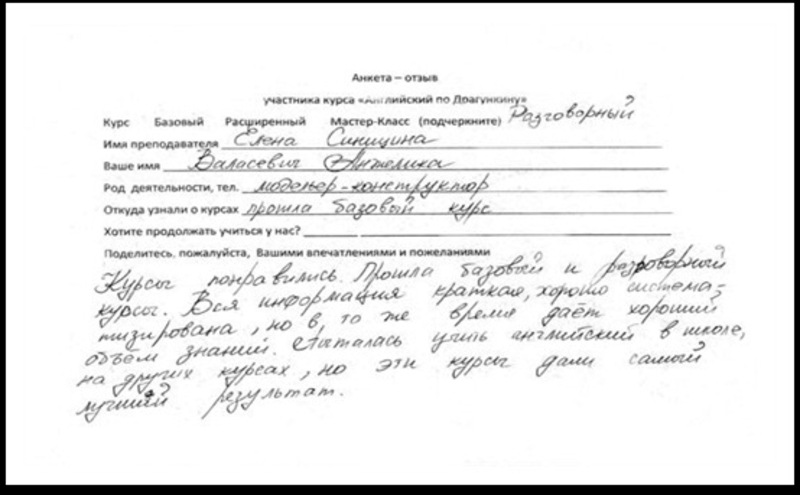 Анкета – отзыв
участника курса «Английский по Драгункину»
Курс Базовый Расширенный Мастер-Класс (подчеркните) Разговорный
Имя преподавателя Елена Синицина
Ваше имя Валасевич Анжелика
Род деятельности, тел. модельер-конструктор
Откуда узнали о курсах прошла базовый курс
Хотите продолжать учиться у нас?
Поделитесь, пожалуйста, Вашими впечатлениями и пожеланиями
Курсы понравились. Прошла базовый и разговорный
курсы. Вся информация краткая, хорошо система-
тизирована, но в то же время даёт хороший
объём знаний. Пыталась учить английский в школе,
на других курсах, но эти курсы дали самый
лучший результат.